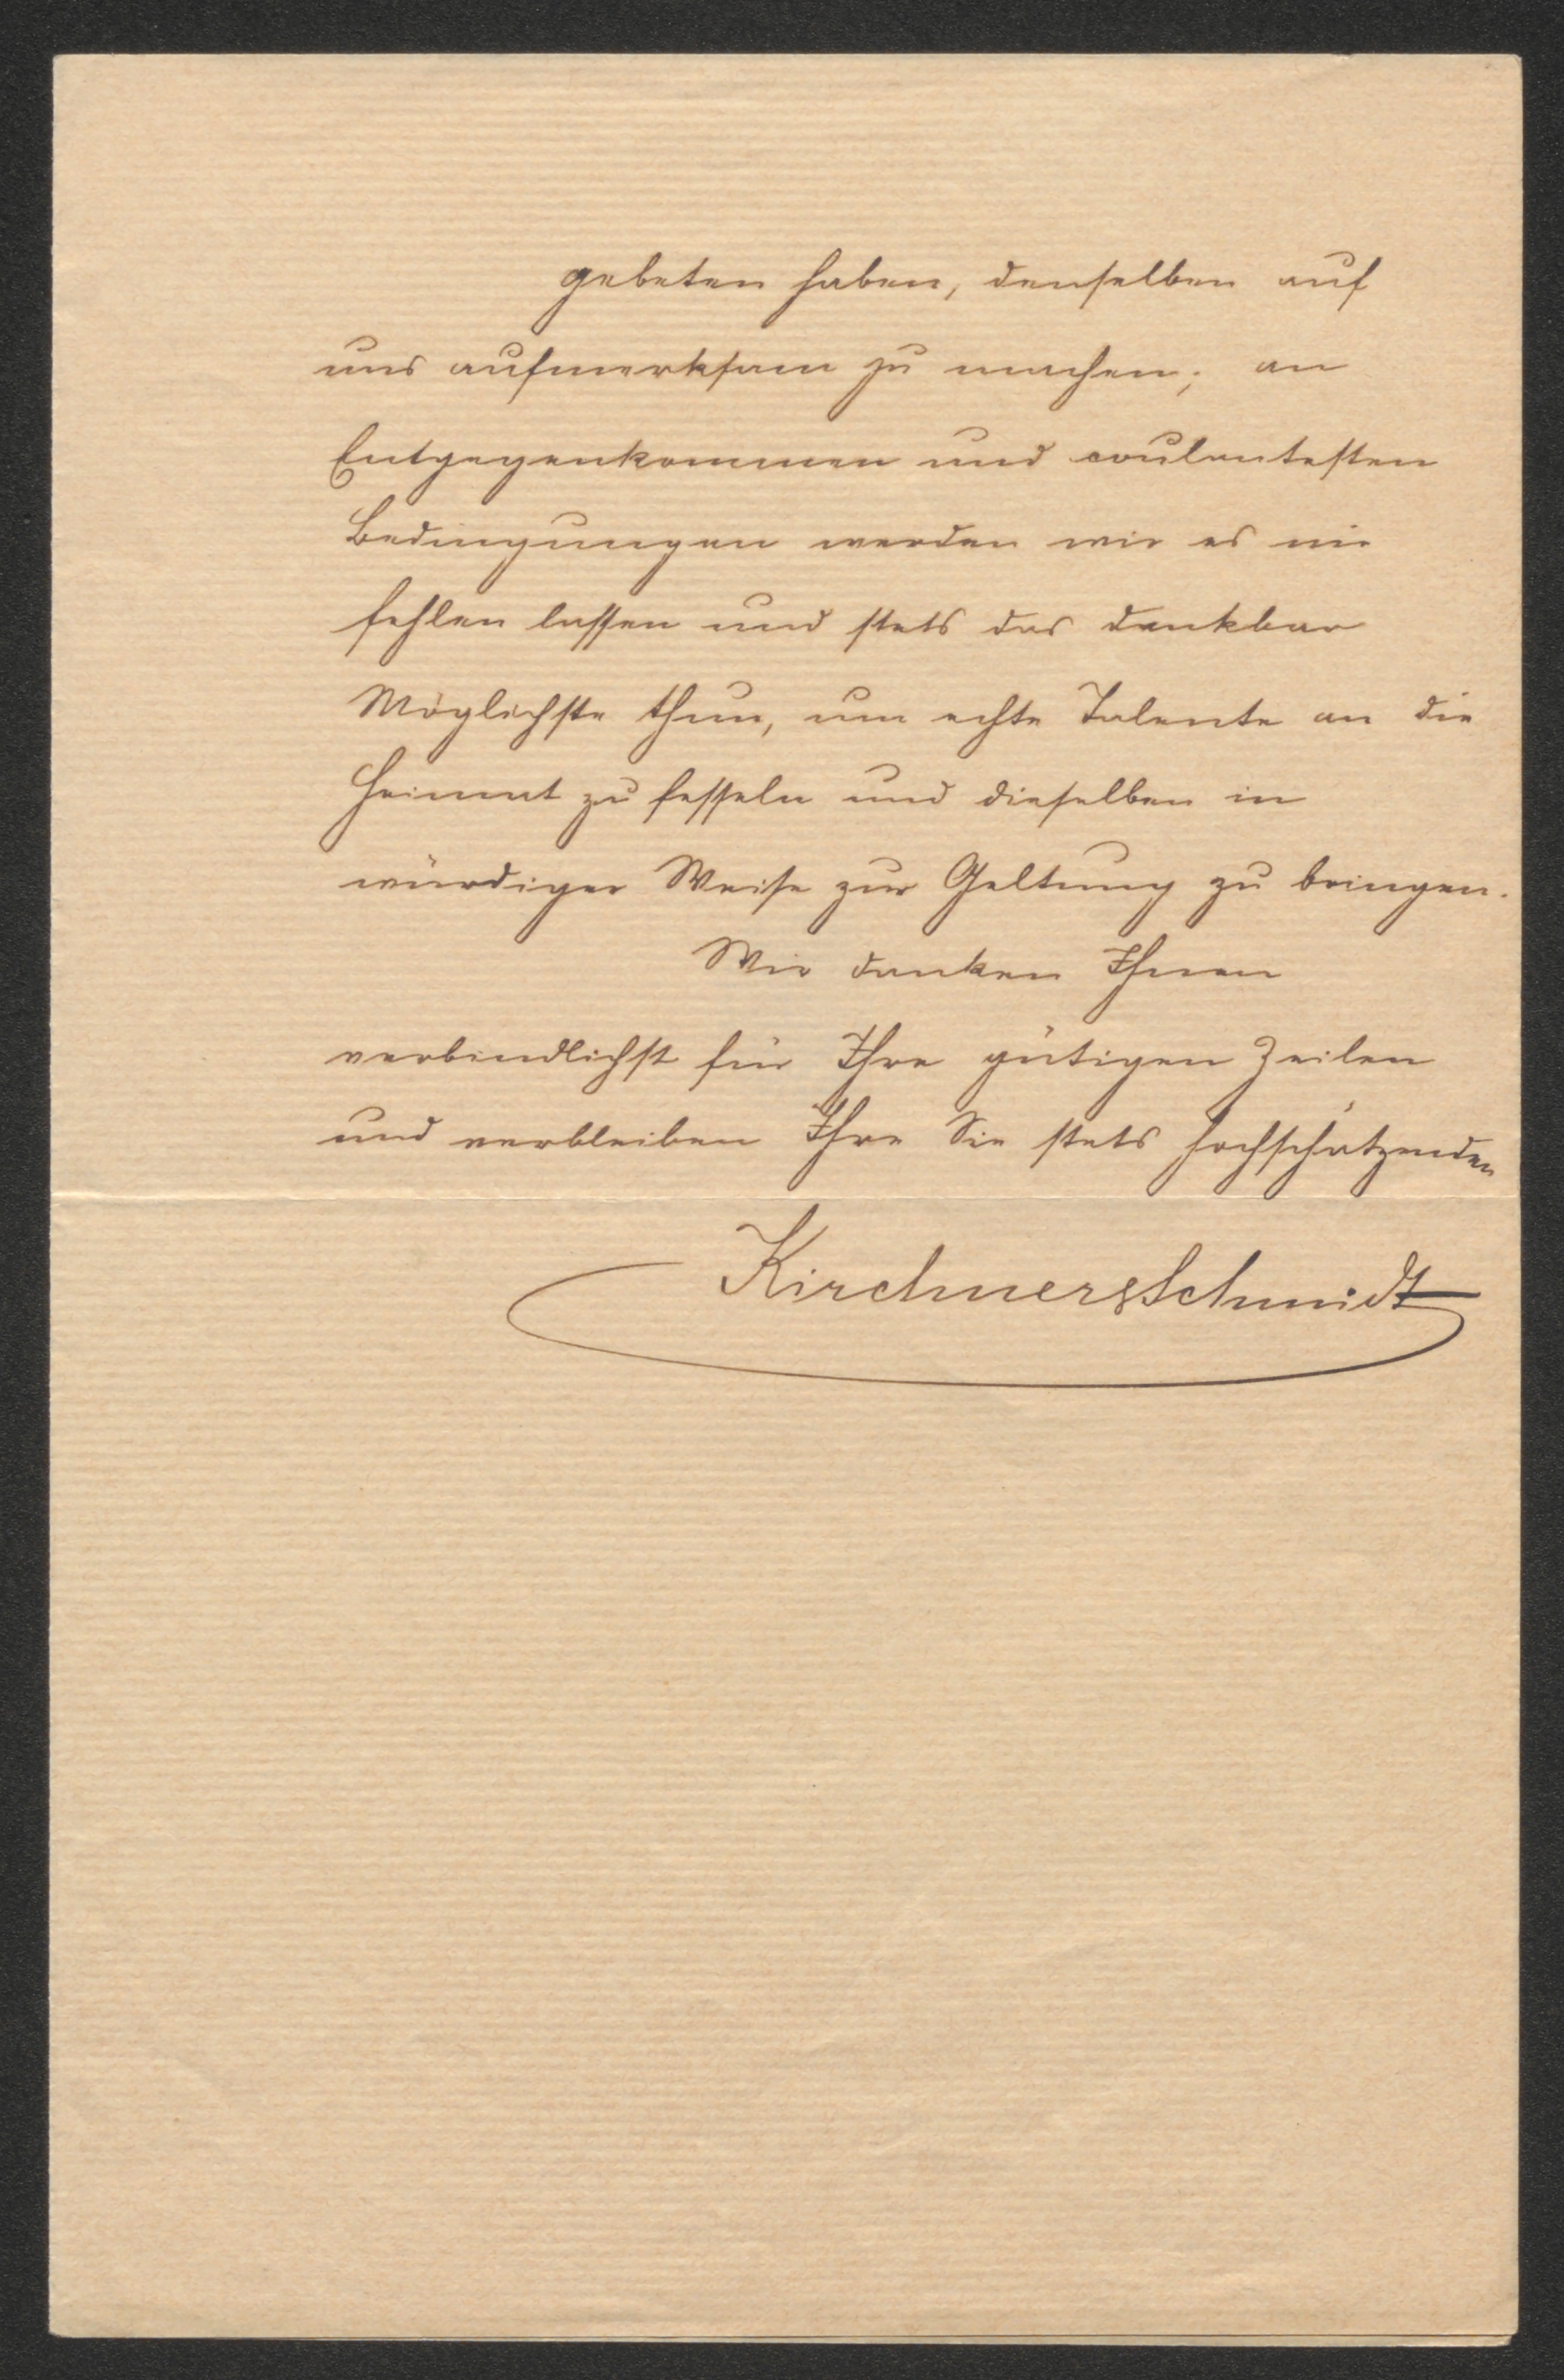 gebeten haben, denselben auf
uns aufmerksam zu machen; an
Entgegenkommen und coulantesten
Bedingungen werden wir es nie
fehlen lassen und stets das denkbar
Möglichste thun, um echte Talente an die
Heimat zu fesseln und dieselben in
würdiger Weise zur Geltung zu bringen.
Wir danken Ihnen
verbindlichst für Ihre gütigen Zeilen
und verbleiben Ihre Sie stets hochschätzenden
Kirchner&Schmidt